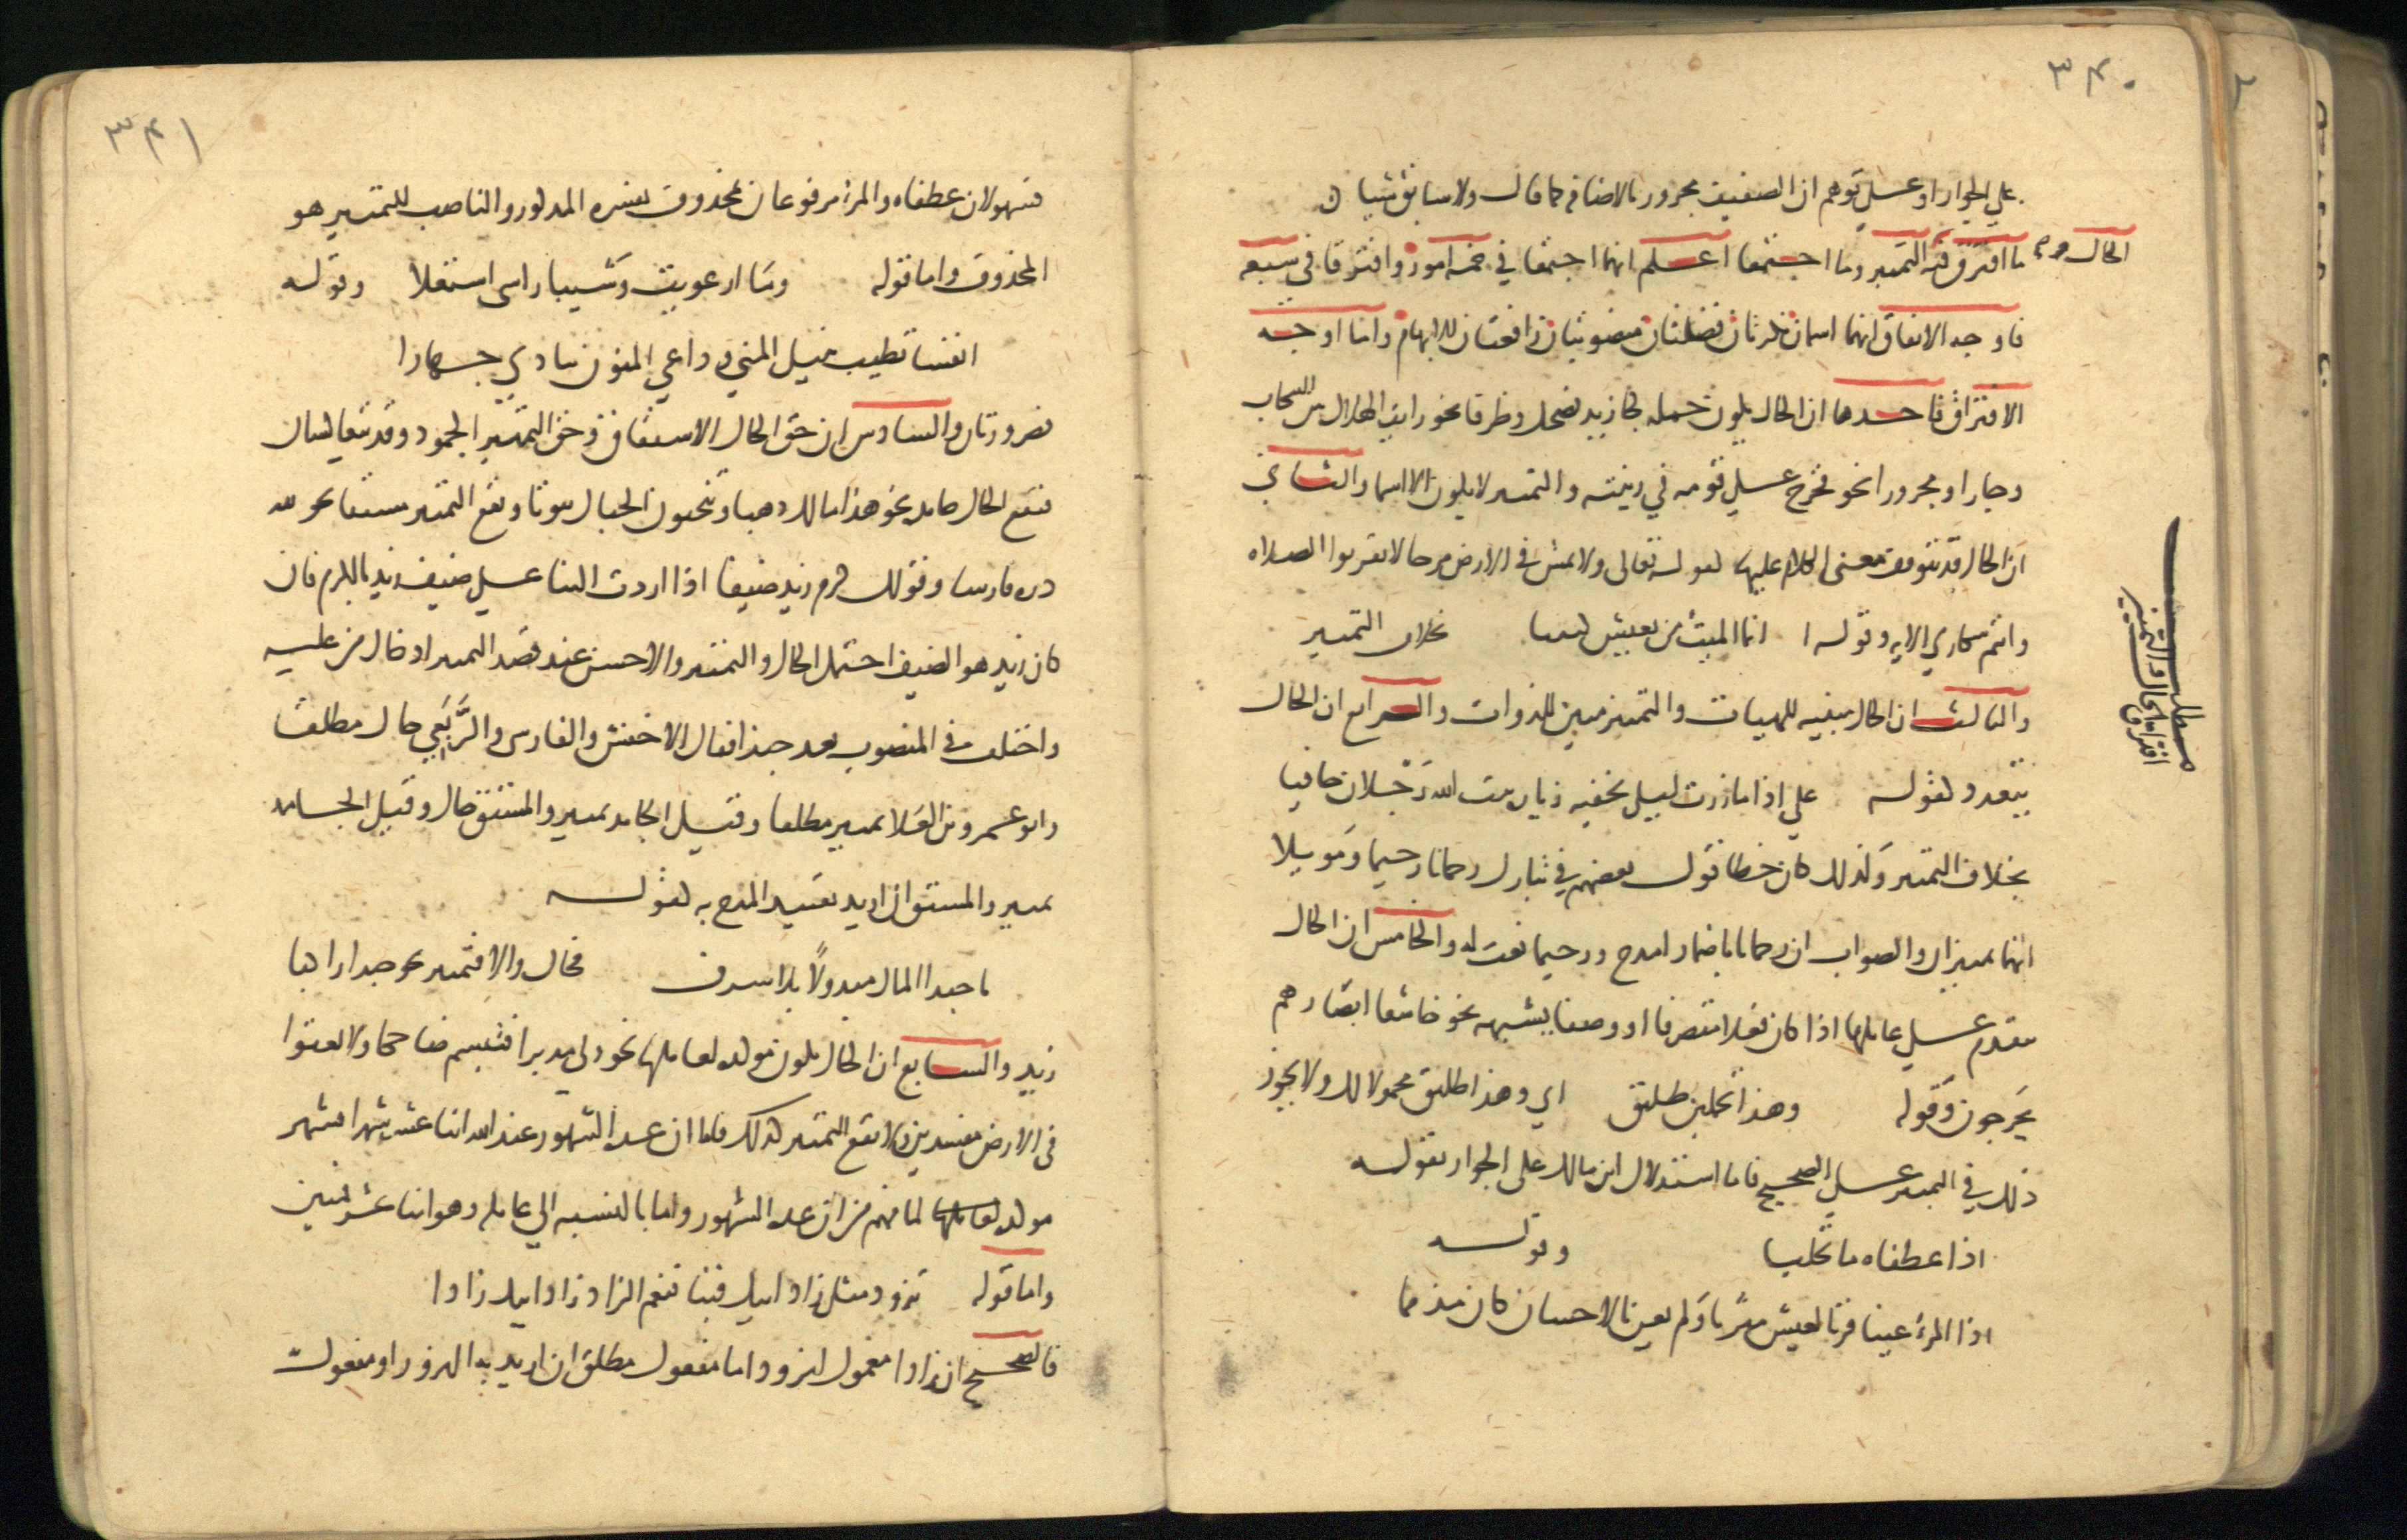 ٣٤٠
على الجوار او على توهم ان الصفيف مجرور بالاضافه كما قال ولا سابق شيئا
ما افترق فيه الحال والتمييز وما اجتمعا اعلم انهما اجتمعا في خمسة امور وافترقا في سبعه
فاوجه الاتفاق انهما اسمان نكرتان فضلتان منصوبتان رافعتان للابهام واما اوجه
الافتراق فاحدها ان الحال يكون جمله كجا زيد يضحك وظرفا نحو رايت الهلال بين السحاب
وجارا ومجرورا نحو فخرج على قومه في زينته والتمييز لا يكون الا اسما والثاني
ان الحال قد يتوقف معنى الكلام عليها كقوله تعالى ولا تمش في الارض مرحا لا تقربوا الصلاه
وانتم سكارى الايه وقوله انما الميت من يعيش كئيبا بخلاف التمييز
والثالث ان الحال مبينه للهيات والتمييز مبين للذوات والرابع ان الحال
يتعدد كقوله علي اذا ما زرت ليلى بخفيه زيارت بيت الله رجلان حافيا
بخلاف التمييز ولذلك كان خطا قول بعضهم في تبارك رحمانا رحيما وموئلا
انهما تمييزان والصواب ان رحمانا باضمار امدح ورحيما نعت له والخامس ان الحال
تتقدم على عاملها اذا كان فعلا متصرفا او وصفا يشبهه نحو خاشعا ابصارهم
يخرجون وقوله وهذا تحملين طليق اي وهذا طليق محمولا لك ولا يجوز
ذلك في التمييز على الصحيح فاما استدلال ابن مالك على الجواز بقوله
اذا عطفاه ماء تحلبا وقوله
اذا المرء عينا قر بالعيش مثريا ولم يعن بالاحسان كان مذمما
مطلب
افتراق الحال والتمييز
٣٤١
فسهو لان عطفاه والمرء مرفوعان بمحذوف يفسره المذكور والناصب للتمييز هو
المحذوف واما قوله وما ارعويت وشيبا راسي اشتعلا وقوله
انفسا تطيب بنيل المنى وداعي المنون ينادي جهارا
فضرورتان والسادس ان حق الحال الاشتقاق وحق التمييز الجمود وقد يتعاكسان
فتقع الحال جامده نحو هذا مالك ذهبا وتنحتون الجبال بيوتا ويقع التمييز مشتقا نحو لله
دره فارسا وقولك كرم زيد ضيفا اذا اردت الثنا على ضيف زيد بالكرم فان
كان زيد هو الضيف احتمل الحال والتمييز والاحسن عند قصد التمييز ادخال من عليه
واختلف في المنصوب بعد حبذا فقال الاخفش والفارسي والربعي حال مطلقا
وابو عمرو بن العلا تمييز مطلقا وقيل الجامد تمييز والمشتق حال وقيل الجامد
تمييز والمشتق ان اريد تقييد المدح به كقوله
يا حبذا المال مبذولا بلا سرف فحال والا فتمييز نحو حبذا راكبا
زيد والسابع ان الحال يكون موكده لعاملها نحو ولى مدبرا فتبسم ضاحكا ولا تعثوا
في الارض مفسدين ولا يقع التمييز كذلك فاما ان عدة الشهور عند الله اثنا عشر شهرا فشهر
موكد لما فهم من ان عدة الشهور واما بالنسبه الى عامله وهو اثنا عشر فمبين
واما قوله تزود مثل زاد ابيك فينا فنعم الزاد زاد ابيك زادا
فالصحيح ان زادا معمول لتزود اما مفعول مطلق ان اريد به التزود او مفعول